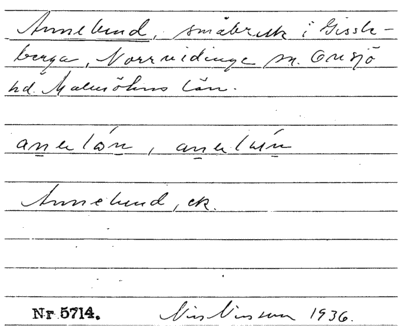 Annelund, småbruk i Gissle-
berga, Norrvidinge sn. Onsjö
hd. Malmöhus län.
Annelund, ek.
Nr 5714. Nils Nilsson 1936.